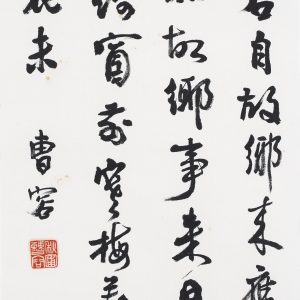 君自故鄉來應
故鄉事來日
綺窗前寒梅著
花未
曹容